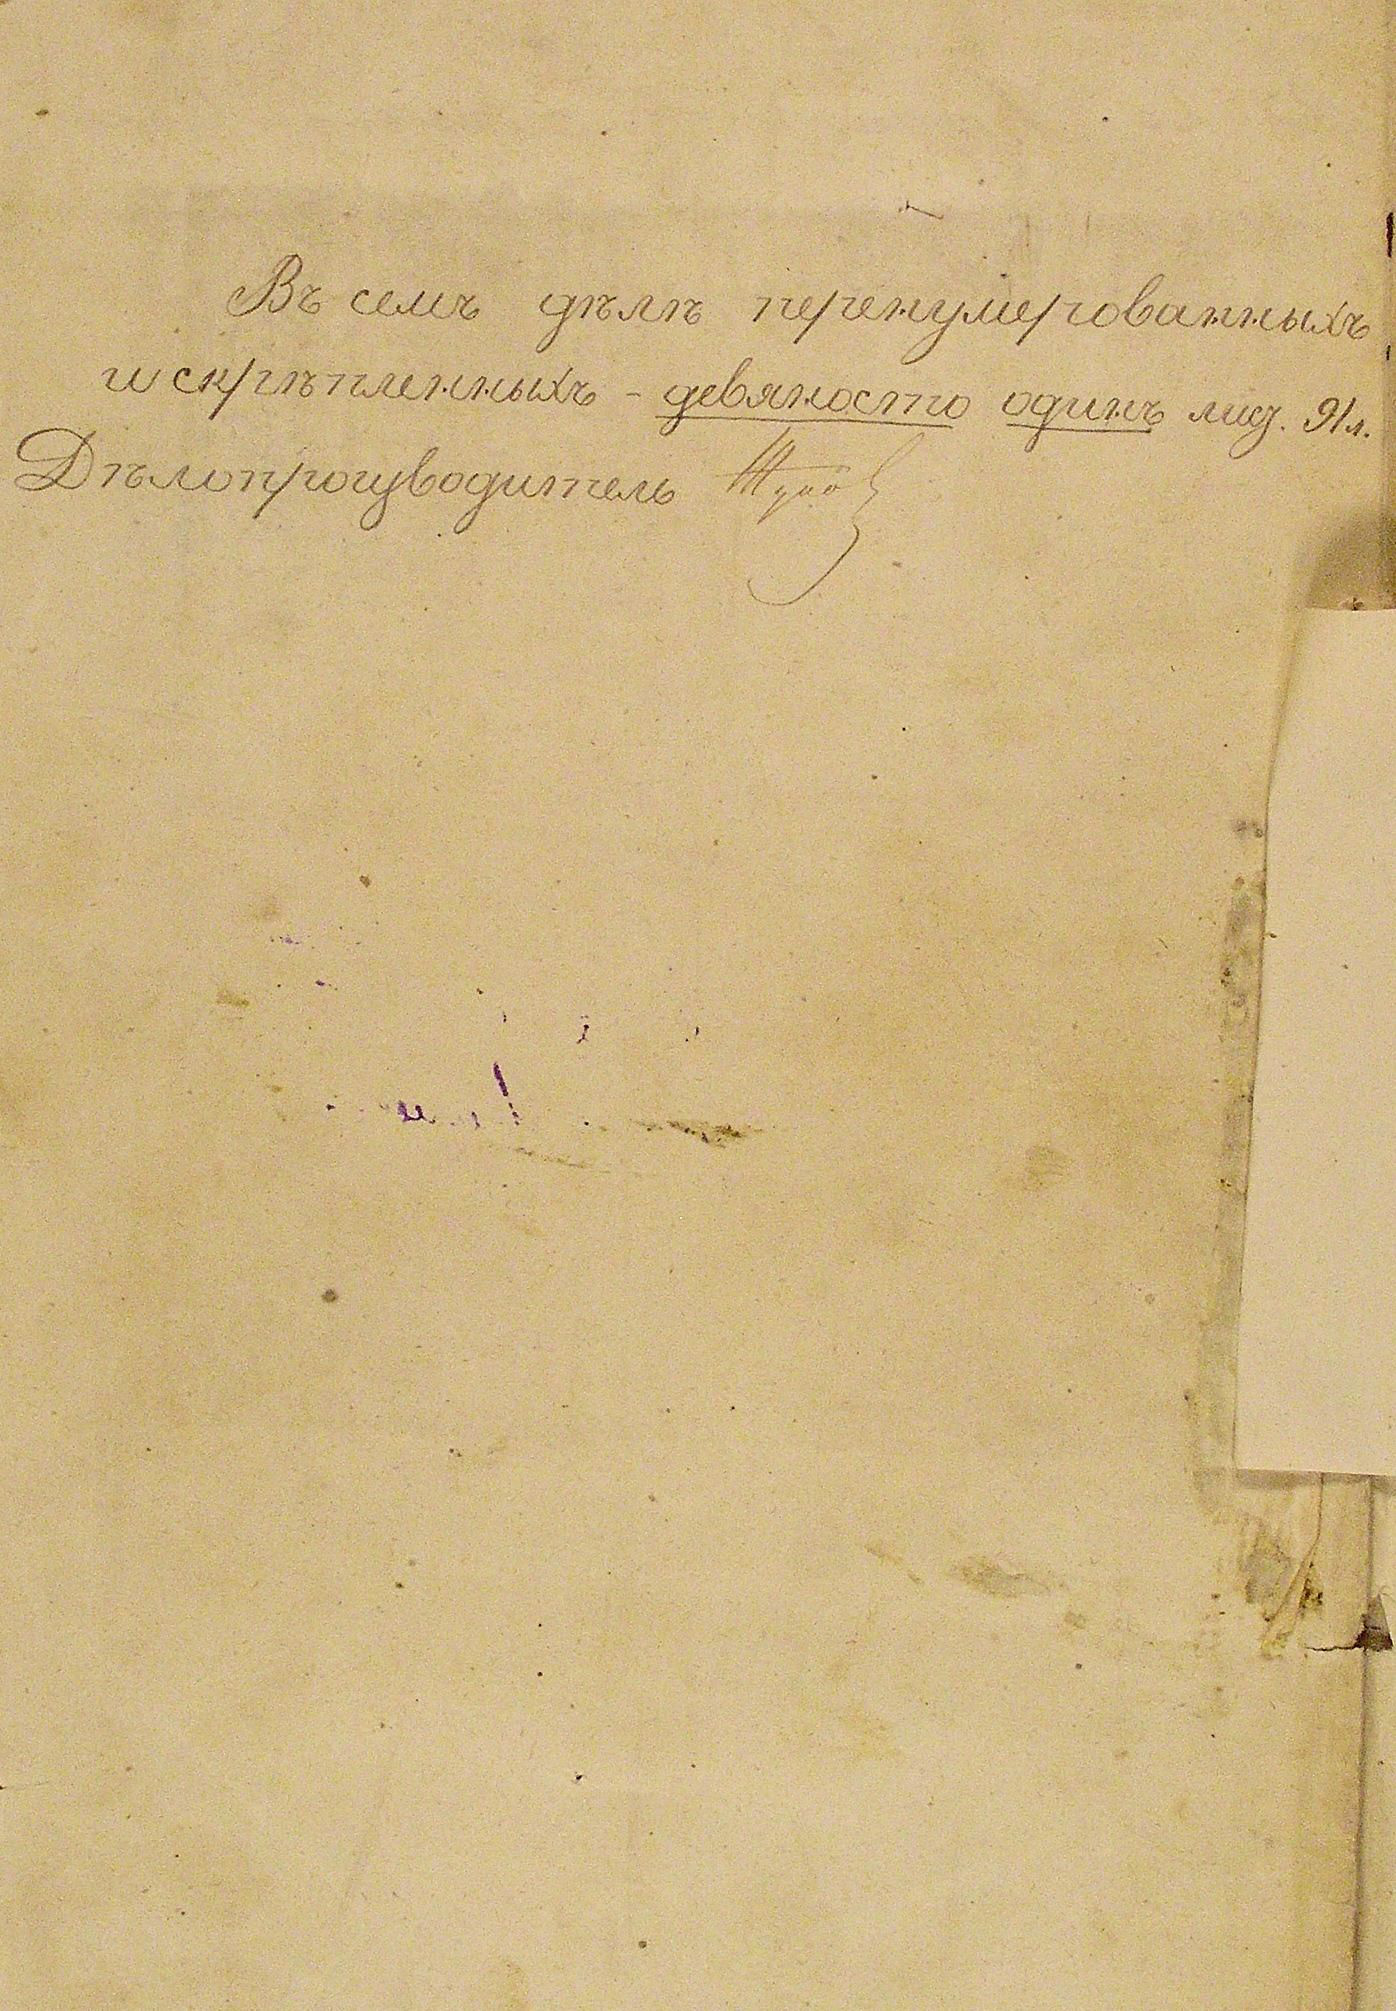 Въ семъ дѣлѣ перенумерованныхъ
и скрѣпленныхъ - девяносто одинъ лис. 91 л.
Дѣлопроизводитель